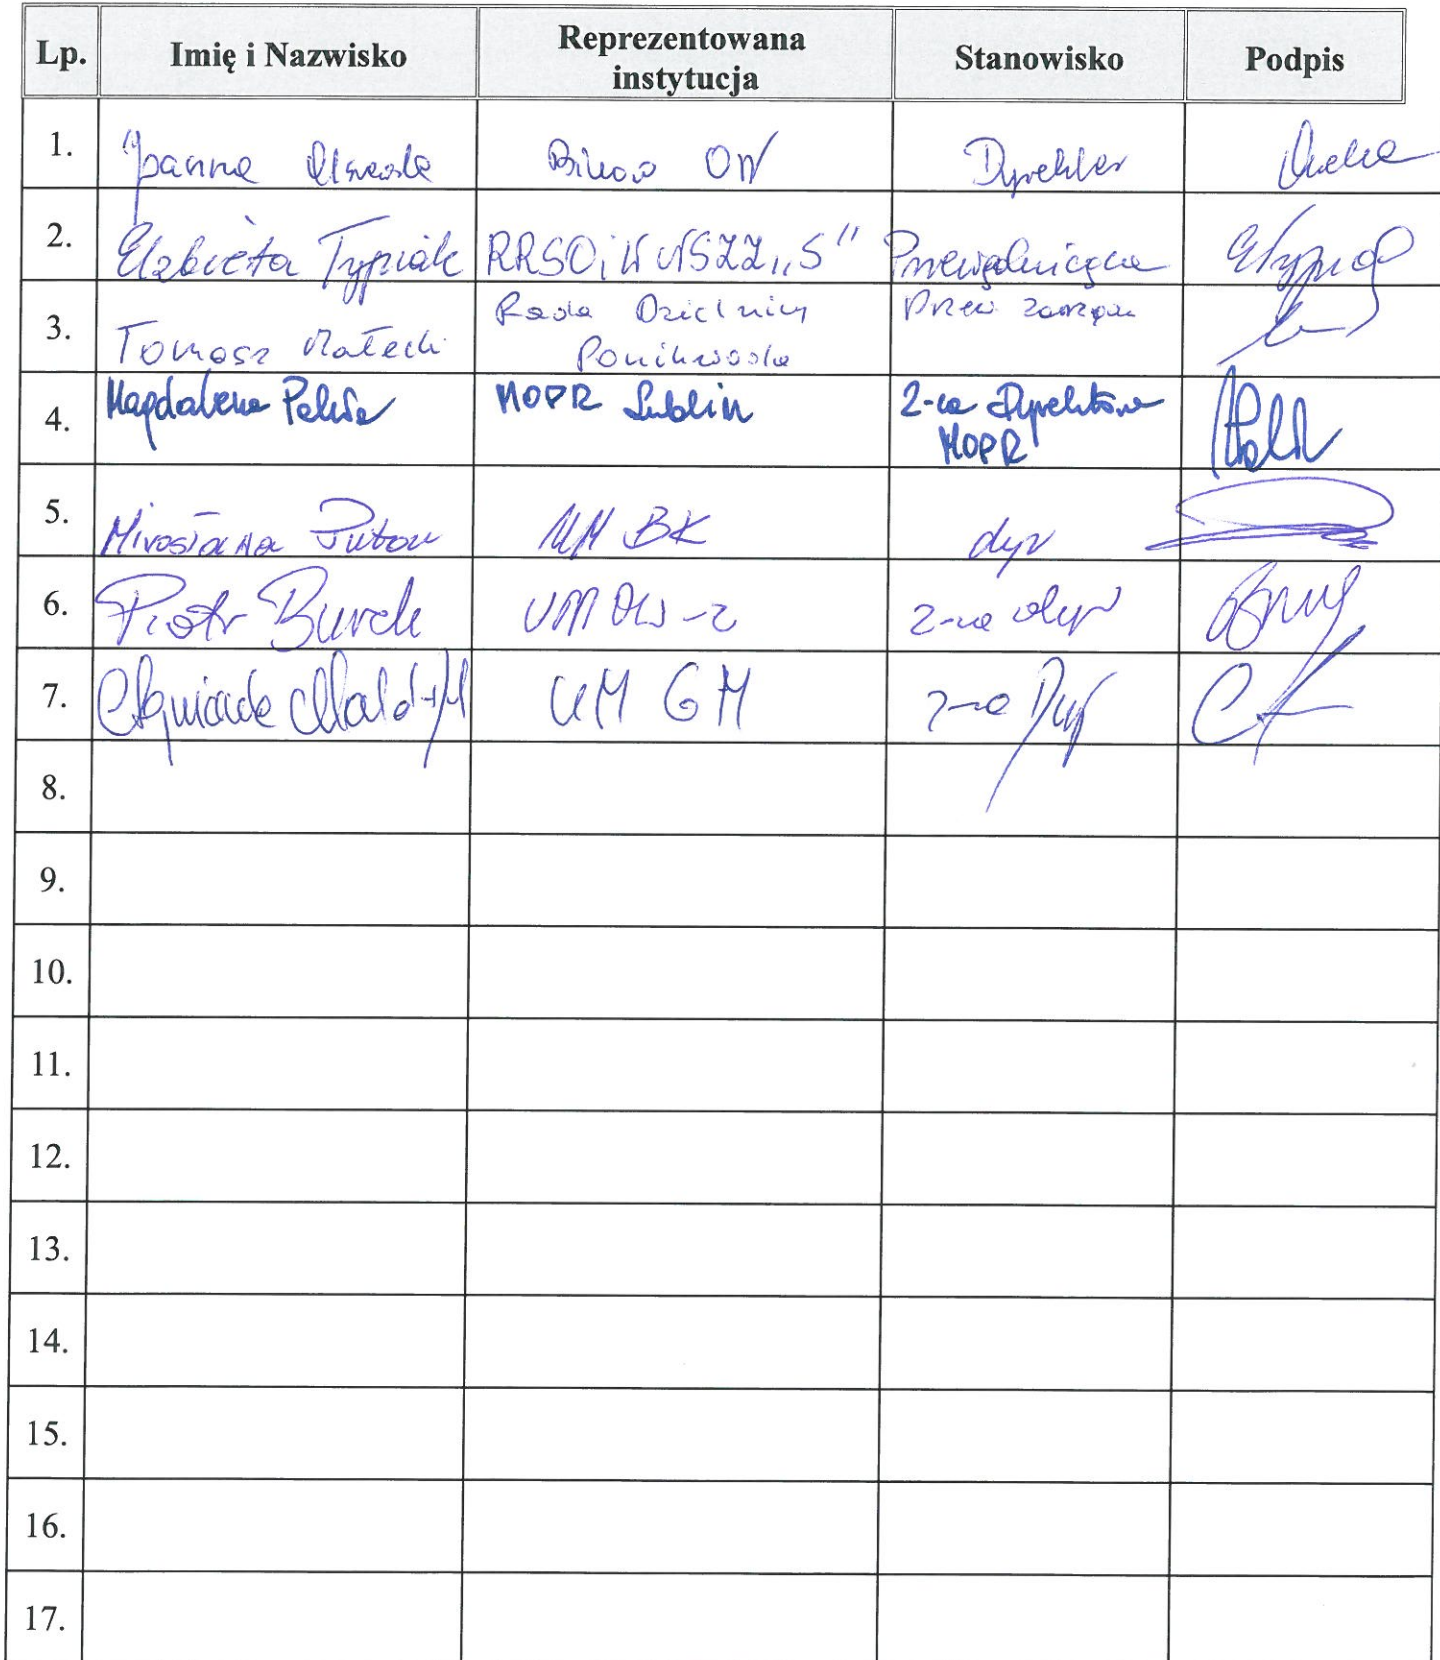 Lp. Imię i Nazwisko Reprezentowana instytucja Stanowisko Podpis
1. Joanna Biuro Dyrektor
2. Elżbieta Typiak RRSOiW NSZZ „S” Przewodnicząca
3. Tomasz Małecki Rada Dzielnicy Ponikwoda Przew zarządu
4. Magdalena MOPR Lublin Z-ca Dyrektora MOPR
5. Mirosława Puton UM BK dyr
6. Piotr Burek UM z-ca dyr
7. UM GM z-ca Dyr
8.
9.
10.
11.
12.
13.
14.
15.
16.
17.